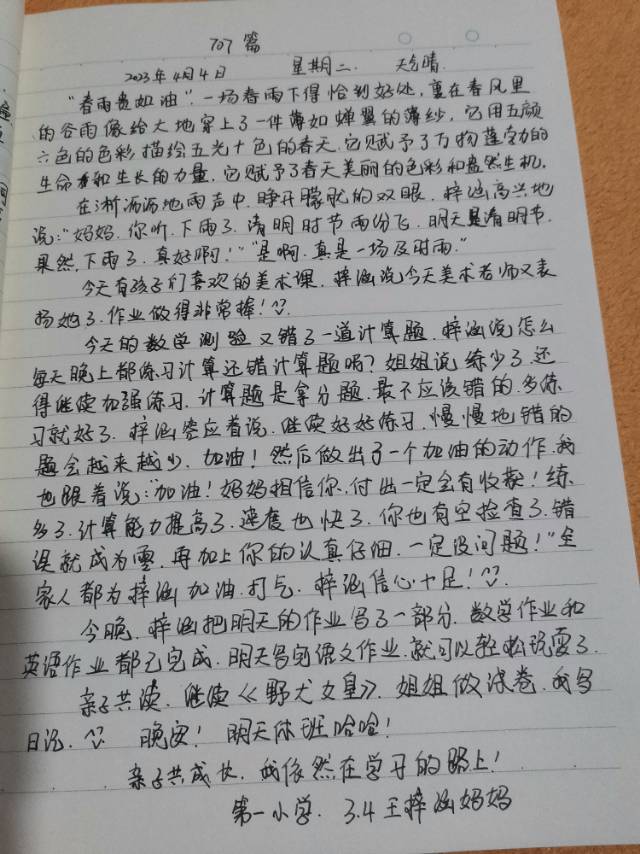 707篇
2023年4月4日 星期二. 天气晴.
"春雨贵如油". 一场春雨下得恰到好处, 裹在春风里
的谷雨像给大地穿上了一件薄如蝉翼的薄纱, 它用五颜
六色的色彩描绘五光十色的春天. 它赋予了万物蓬勃的
生命和生长的力量. 它赋予了春天美丽的色彩和盎然生机.
在淅沥沥地雨声中. 睁开朦胧的双眼. 梓涵高兴地
说:"妈妈. 你听. 下雨了. 清明时节雨纷飞. 明天是清明节.
果然. 下雨了. 真好啊!""是啊. 真是一场及时雨."
今天有孩子们喜欢的美术课. 梓涵说今天美术老师又表
扬她了. 作业做得非常棒! ^^
今天的数学测验又错了一道计算题. 梓涵说怎么
每天晚上都练习计算还错计算题呢? 姐姐说练少了. 还
得继续加强练习. 计算题是拿分题. 最不应该错的. 多练
习就好了. 梓涵答应着说. 继续好好练习. 慢慢地错的
题会越来越少. 加油! 然后做出了一个加油的动作. 我
也跟着说:"加油! 妈妈相信你. 付出一定会有收获! 练
多了. 计算能力提高了. 速度也快了. 你也有空检查了. 错
误就成为零. 再加上你的认真仔细. 一定没问题!" 全
家人都为梓涵加油. 打气. 梓涵信心十足! ^^.
今晚. 梓涵把明天的作业写了一部分. 数学作业和
英语作业都已完成. 明天写完语文作业. 就可以轻松玩耍了.
亲子共读. 继续《野犬女皇》. 姐姐做试卷. 我写
日记. ^^ 晚安! 明天休班哈哈!
亲子共成长. 我依然在学习的路上!
第一小学. 3.4 王梓涵妈妈